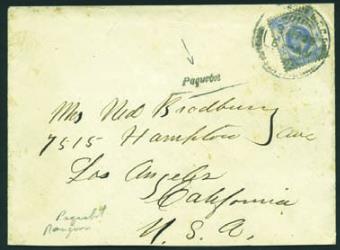 Paquebot
Mrs Ned Bradbury
7515 Hampton Ave
Los Angeles
California
U. S. A.
Paquebot
Rangoon